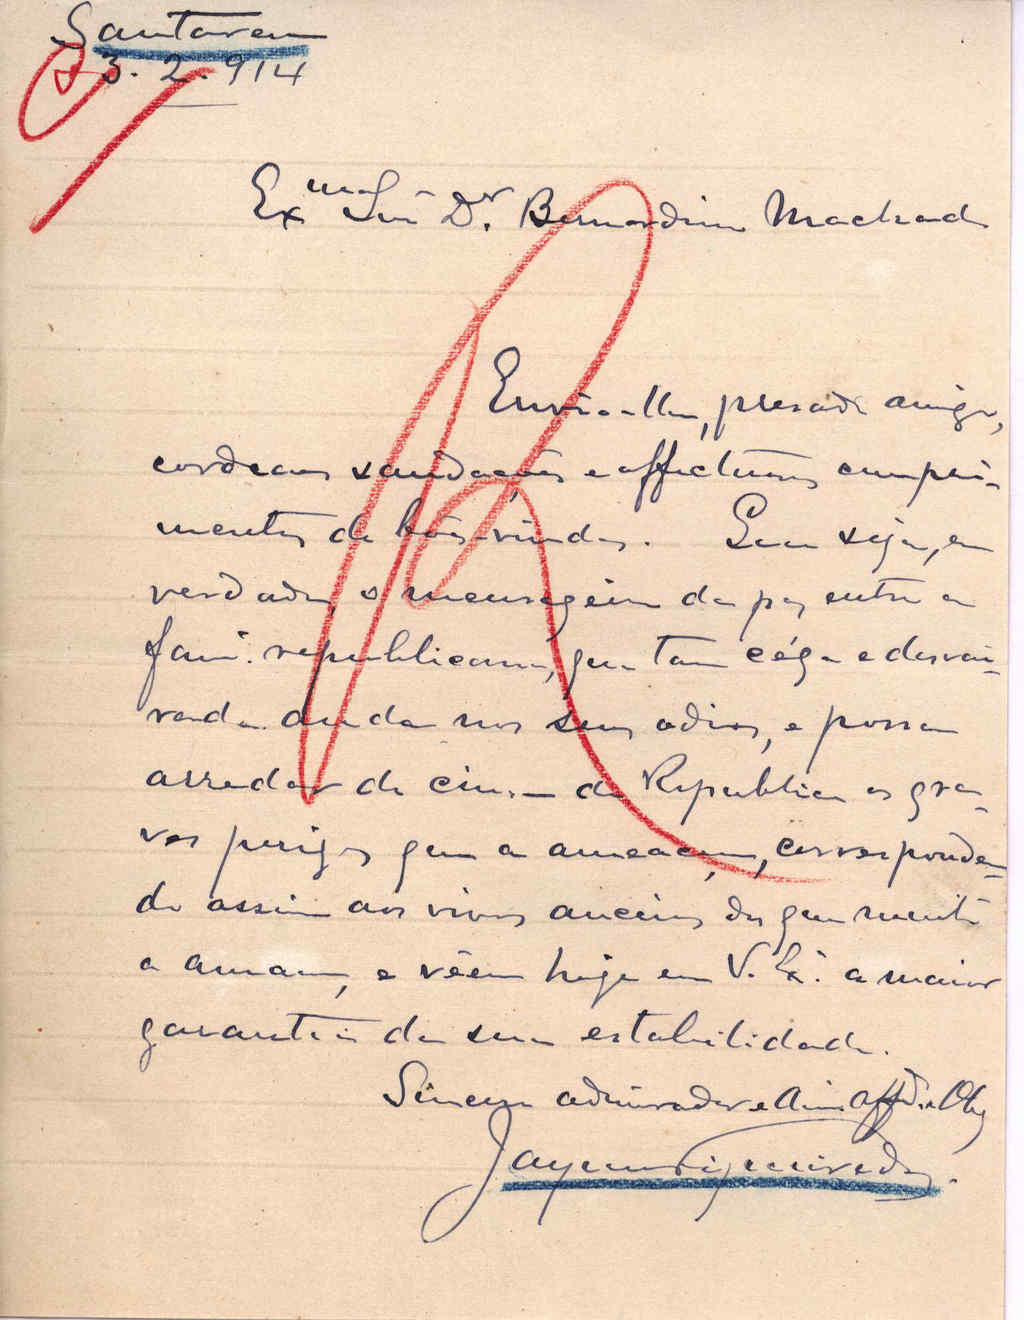 Santarem
3.2.914
Exmo Snr Dr. Bernardino Machado
Envio-lhe, presado amigo,
cordeaes saudações e affectuosos cumpri-
mentos de bôas-vindas. Que seja, em
verdade, o mensageiro da paz entre a
fam. republicana, que tam céga e desvai-
rada anda nos seus odios, e possa
arredar de cima da Republica os gra-
ves perigos que a ameaçam, corresponden-
do assim aos vivos anceios dos que
a amam, e vêem hoje em V. Ex. a maior
garantia da sua estabilidade.
Sincero admirador e Amo affdo e Obg
Jayme Figueiredo.